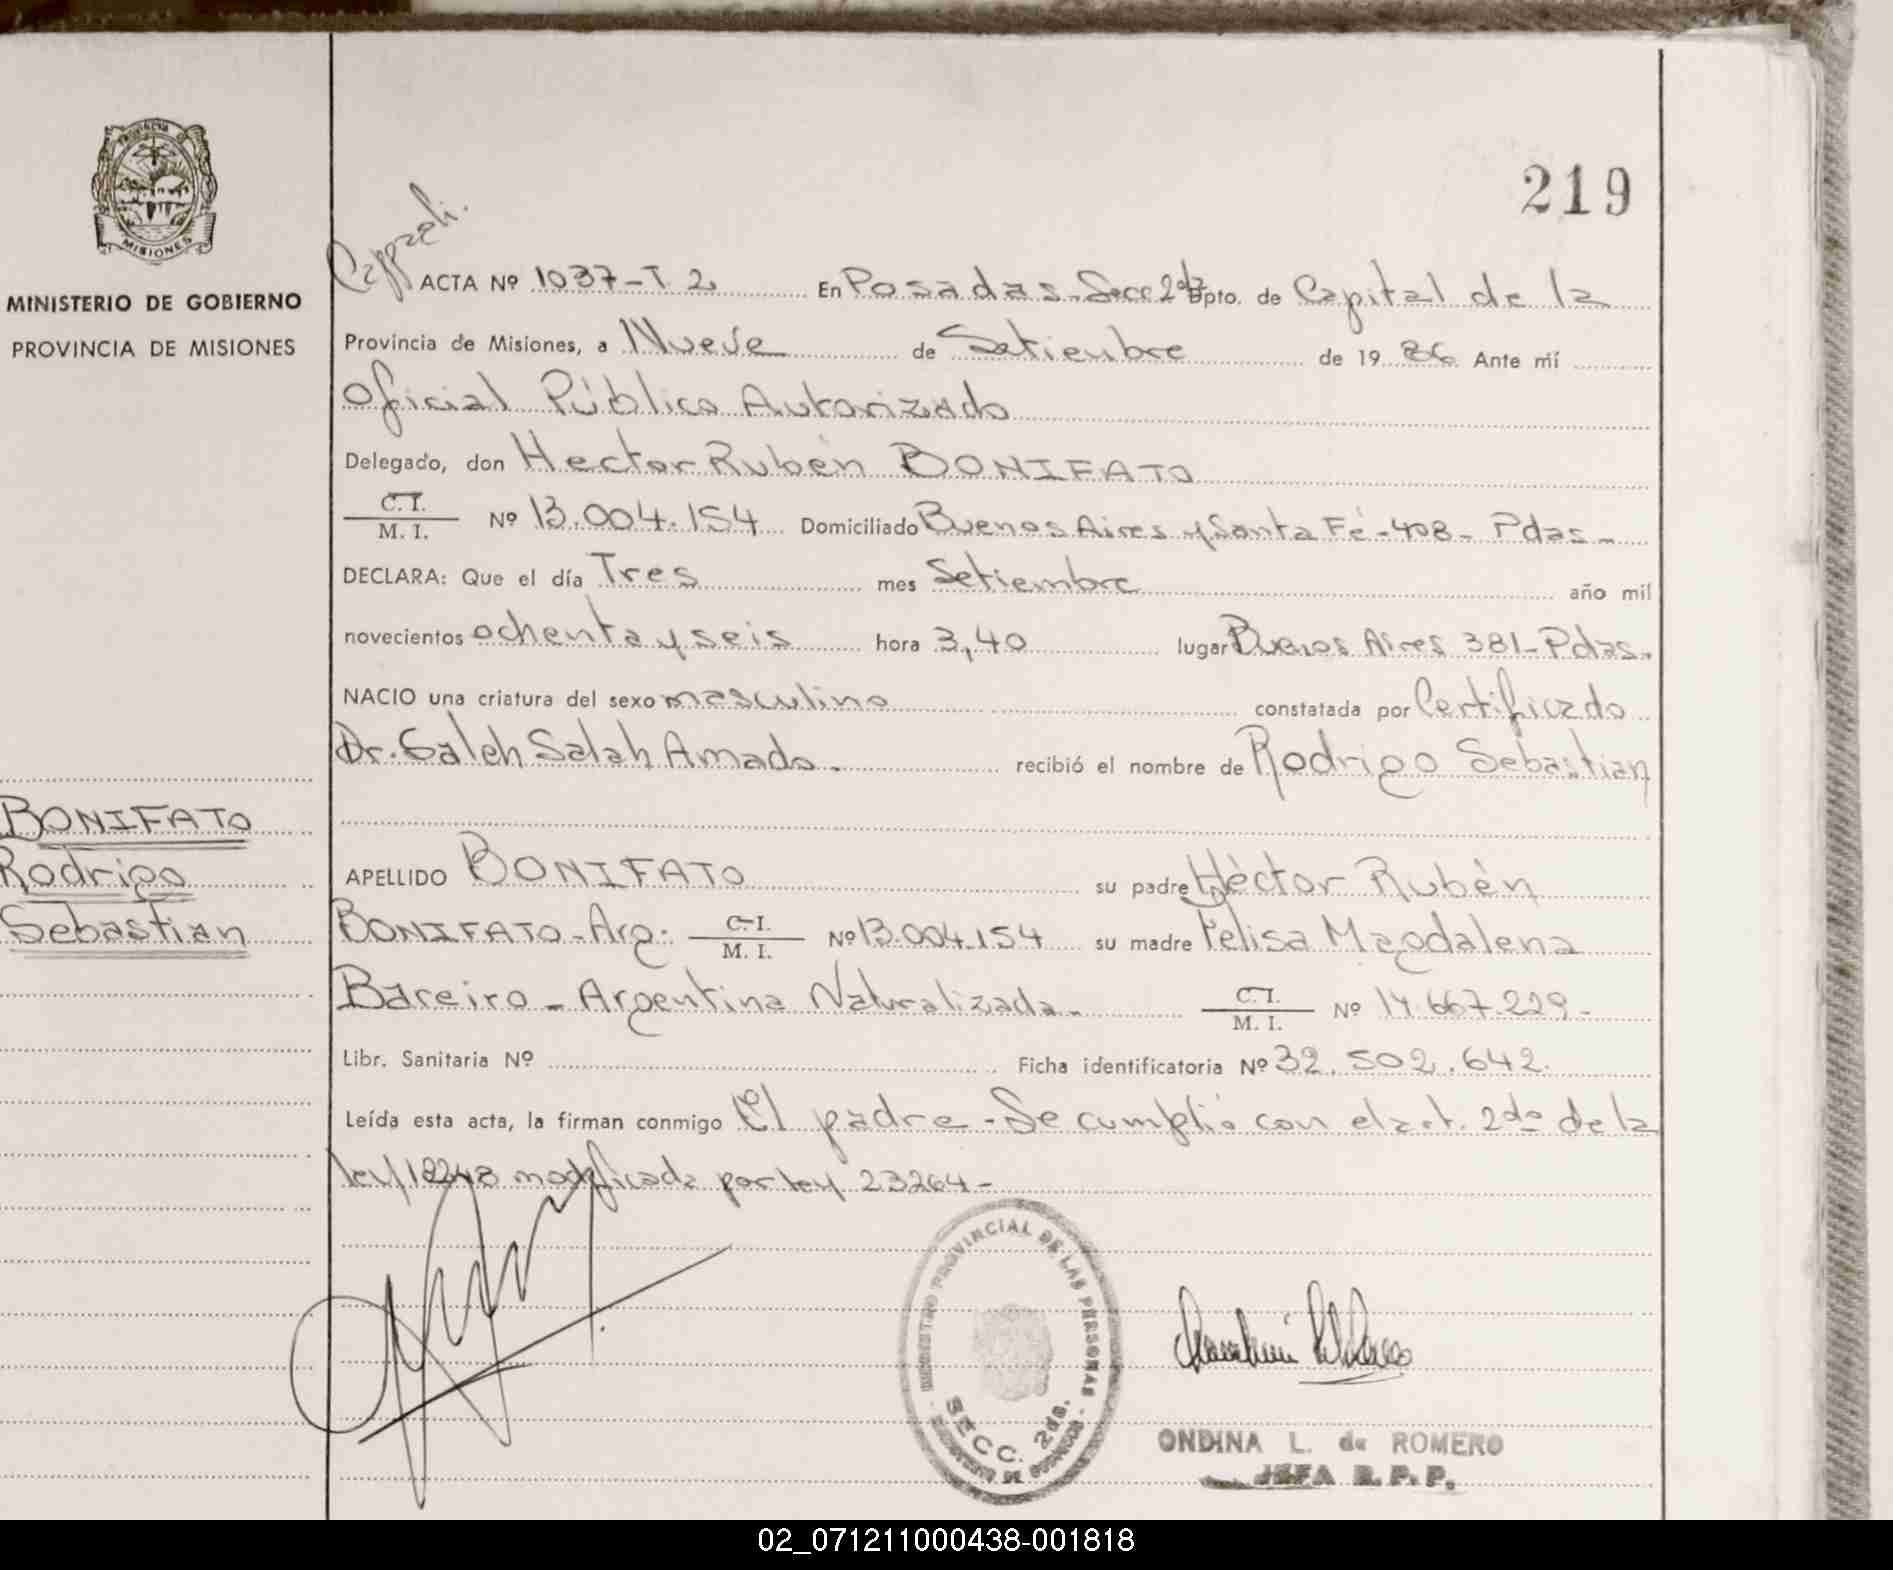 219
PROVINCIA DE
MISIONES
MINISTERIO DE GOBIERNO
PROVINCIA DE MISIONES
ACTA Nº 1037-T 2 En Posadas-Secc 2da Dpto. de Capital de la
Provincia de Misiones, a Nueve de Setiembre de 1986 Ante mí
Oficial Público Autorizado
Delegado, don Hector Rubén BONIFATO
C.I.
M. I. Nº 13.004.154 Domiciliado Buenos Aires y Santa Fé-408- Pdas-
DECLARA: Que el día Tres mes Setiembre año mil
novecientos ochenta y seis hora 3,40 lugar Buenos Aires 381-Pdas.
NACIO una criatura del sexo masculino constatada por Certificado
Dr. Galeh Salah Amado. recibió el nombre de Rodrigo Sebastian
BONIFATO
Rodrigo
Sebastian
APELLIDO BONIFATO su padre Héctor Rubén
BONIFATO-Arg. C.I.
M. I. Nº 13.004.154 su madre Felisa Magdalena
Bareiro - Argentina Naturalizada- C.I.
M. I. Nº 14.667.229-
Libr. Sanitaria Nº Ficha identificatoria Nº 32.502.642.
Leída esta acta, la firman conmigo El padre - Se cumplió con el art. 2do de la
ley 18248 modificada por ley 23264-
REGISTRO PROVINCIAL DE LAS PERSONAS
SECC. 2da.
ONDINA L. de ROMERO
JEFA R. P. P.
02_071211000438-001818